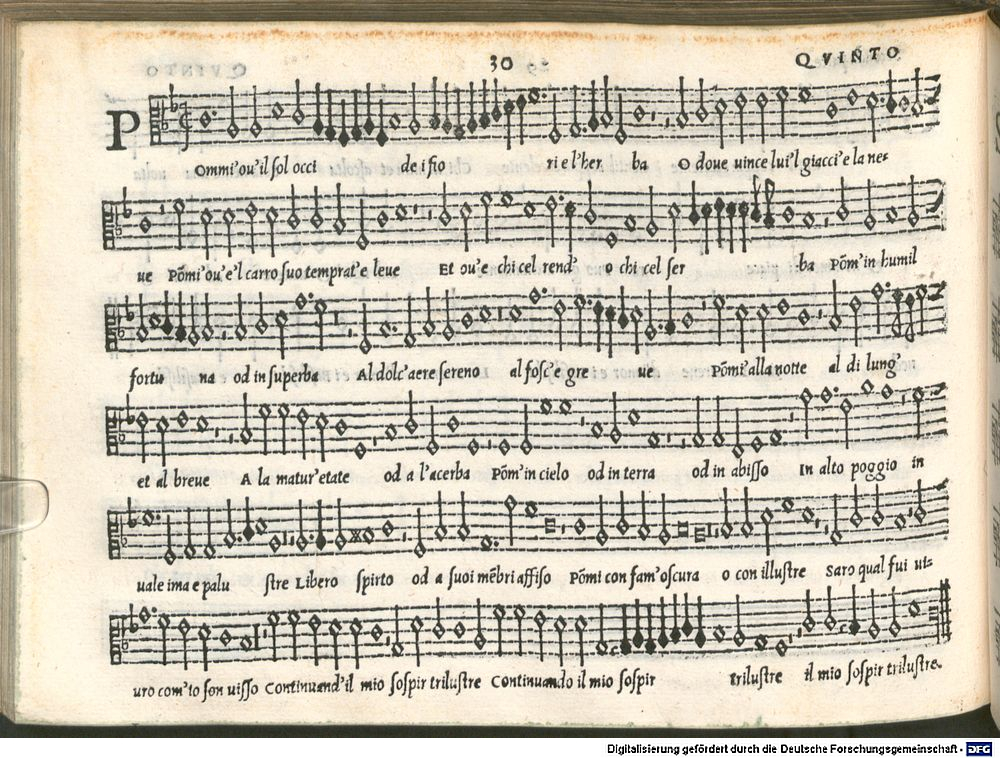 30
QVINTO
P
ommi'ou'il sol occi de i fio ri e l'her ba O doue uince lui'l giacci'e la ne-
ue Põmi'ou'e'l carro suo temprat'e leue Et ou'e chi cel rend' o chi cel ser ba Põm'in humil
fortu na od in superba Al dolc'aere sereno al fosc'e gre ue Põmi'alla notte al di lung'
et al breue A la matur'etate od a l'acerba Põm'in cielo od in terra od in abisso In alto poggio in
uale ima e palu stre Libero spirto od a suoi mẽbri affiso Põmi con fam'oscura o con illustre Saro qual fui ui-
uro com'io son uisso Continuand'il mio sospir trilustre Continuando il mio sospir trilustre il mio sospir trilustre.
Digitalisierung gefördert durch die Deutsche Forschungsgemeinschaft - DFG